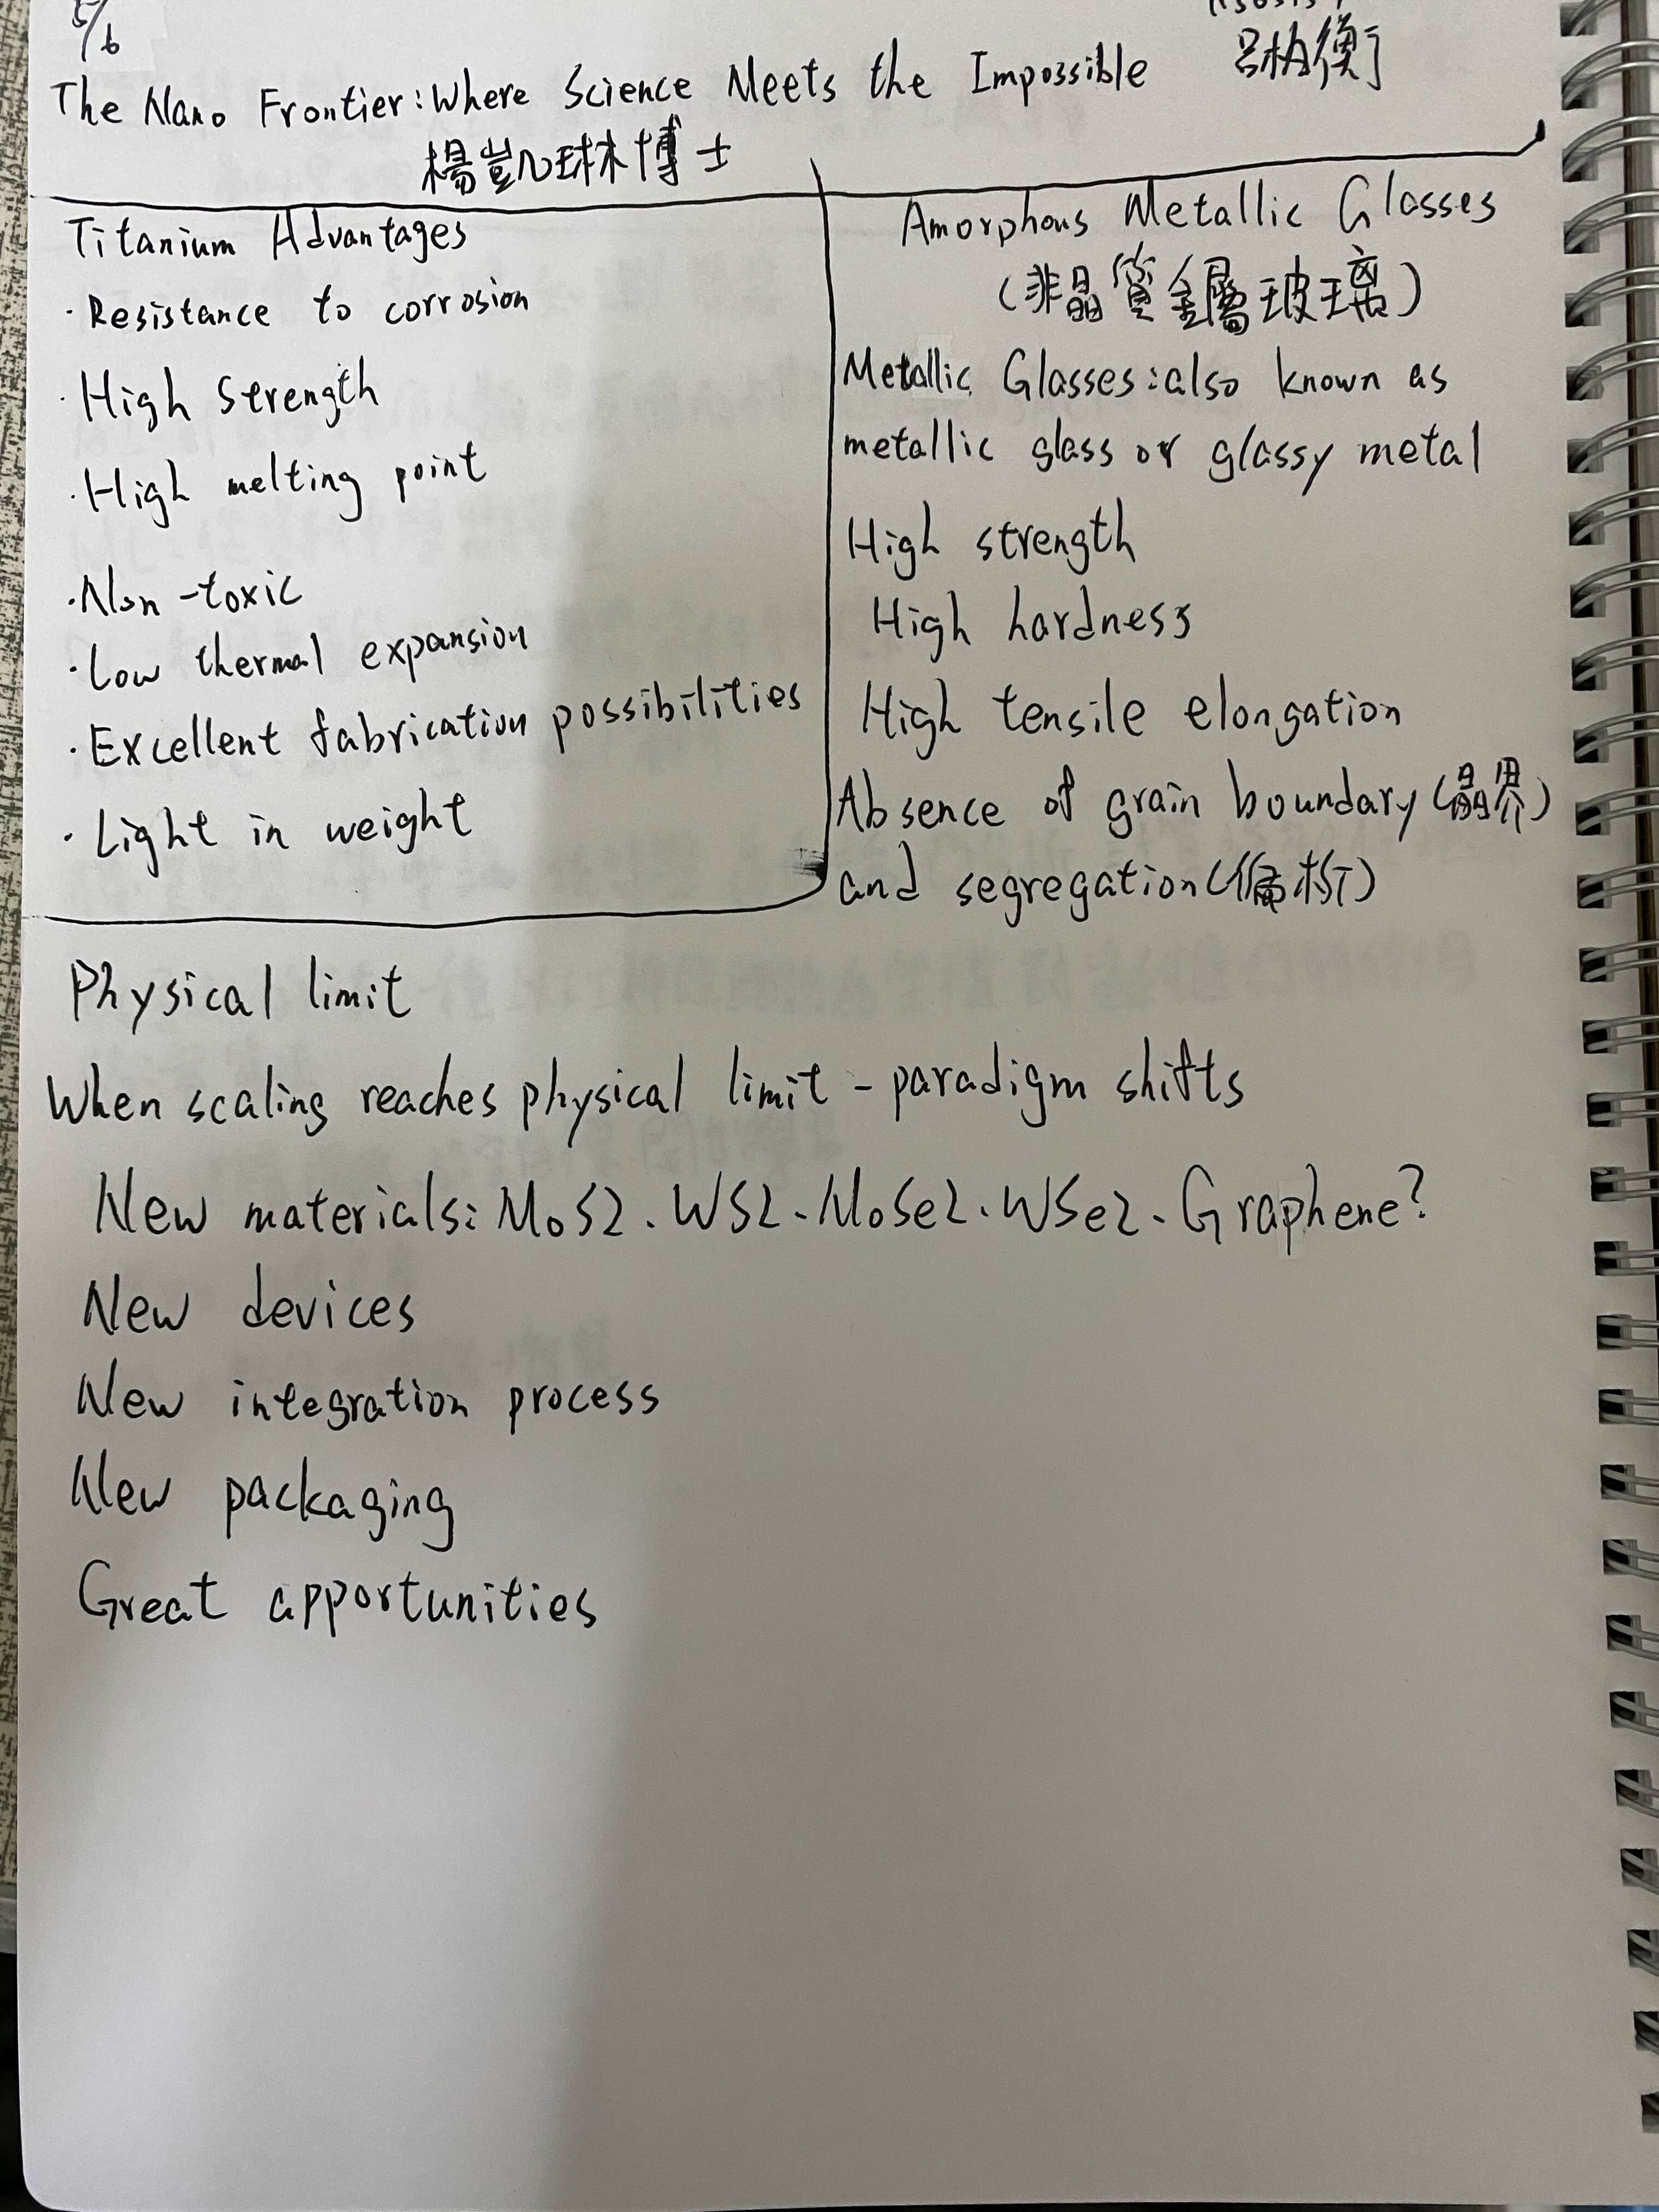 5/6
The Nano Frontier: Where Science Meets the Impossible
呂柏衡
楊凱琳博士
Titanium Advantages
· Resistance to corrosion
· High strength
· High melting point
· Non-toxic
· Low thermal expansion
· Excellent fabrication possibilities
· Light in weight
Amorphous Metallic Glasses
(非晶質金屬玻璃)
Metallic Glasses: also known as
metallic glass or glassy metal
High strength
High hardness
High tensile elongation
Absence of grain boundary (晶界)
and segregation (偏析)
Physical limit
When scaling reaches physical limit - paradigm shifts
New materials: MoS2、WS2、MoSe2、WSe2、Graphene?
New devices
New integration process
New packaging
Great apportunities